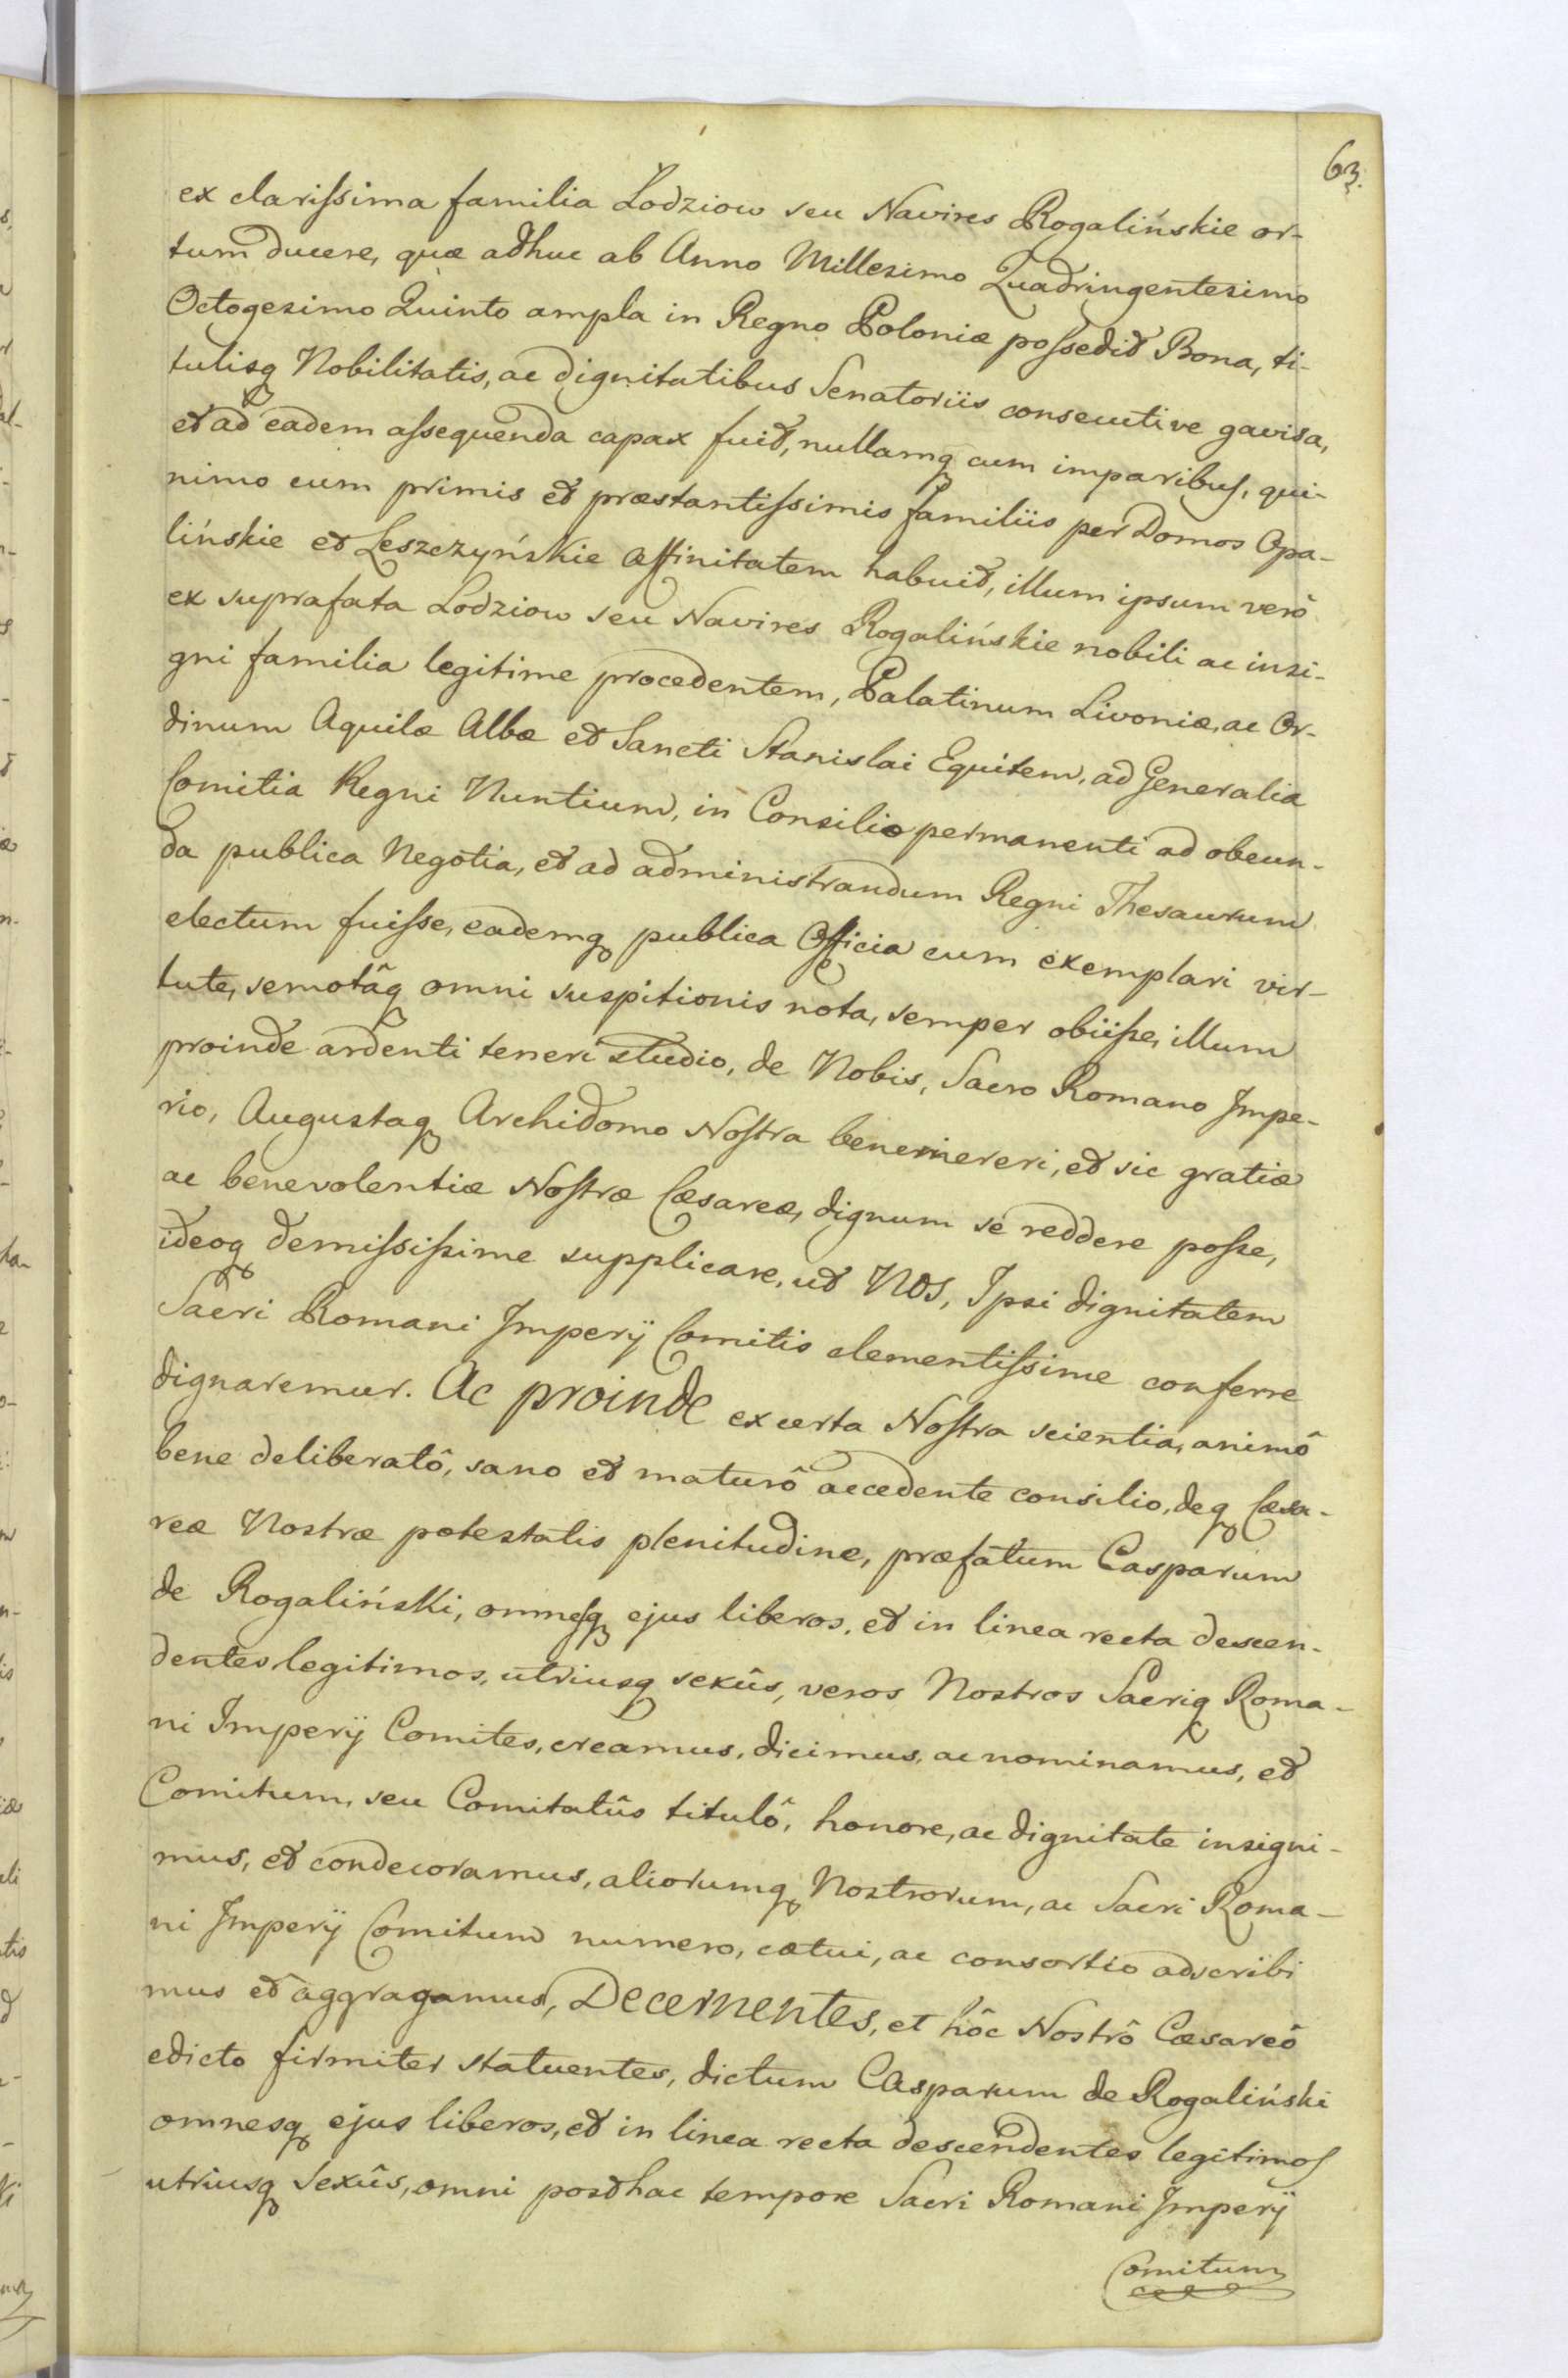 63.
ex clarissima familia Lodziow seu Navires Rogalińskie or-
tum ducere, quæ adhuc ab Anno Millesimo Quadringentesimo
Octogesimo Quinto ampla in Regno Poloniæ possedit Bona, ti-
tulisq Nobilitatis, ac dignitatibus Senatoriis consecutive gavisa,
et ad eadem assequenda capax fuit, nullamq cum imparibus, qui-
nimo cum primis et præstantissimis familiis per Domos Opa-
lińskie et Leszczyńskie Affinitatem habuit, illum ipsum verò
ex suprafata Lodziow seu Navires Rogalińskie nobili ac insi-
gni familia legitime procedentem, Palatinum Livoniæ, ac Or-
dinum Aquilæ Albæ et Sancti Stanislai Equitem, ad Generalia
Comitia Regni Nuntium, in Consilio permanenti ad obeun-
da publica Negotia, et ad administrandum Regni Thesaurum
electum fuisse, eademq publica Officia cum exemplari vir-
tute, semotâq omni suspitionis nota, semper obiisse, illum
proinde ardenti teneri studio, de Nobis, Sacro Romano Impe-
rio, Augustaq Archidomo Nostra benemereri, et sic gratiæ
ac benevolentiæ Nostræ Cæsareæ, dignum se reddere posse,
ideoq demississime supplicare, ut NOS, Ipsi dignitatem
Sacri Romani Imperÿ Comitis clementissime conferre
dignaremur. Ac proinde ex certa Nostra scientia, animô
bene deliberatô, sano et maturô accedente consilio, deq Cæsa-
reæ Nostræ potestatis plenitudine, præfatum Casparum
de Rogaliński, omnesq ejus liberos, et in linea recta descen-
dentes legitimos, utriusq sexûs, veros Nostros Sacriq Roma-
ni Imperÿ Comites, creamus, dicimus, ac nominamus, et
Comitum, seu Comitatûs titulô, honore, ac dignitate insigni-
mus, et condecoramus, aliorumq Nostrorum, ac Sacri Roma-
ni Imperÿ Comitum numero, cœtui, ac consortio adscribi
mus et aggragamus, Decernentes, et hôc Nostrô Cæsareô
edicto firmiter statuentes, dictum Casparum de Rogaliński
omnesq ejus liberos, et in linea recta descendentes legitimos
utriusq Sexûs, omni posthac tempore Sacri Romani Imperÿ
Comitum